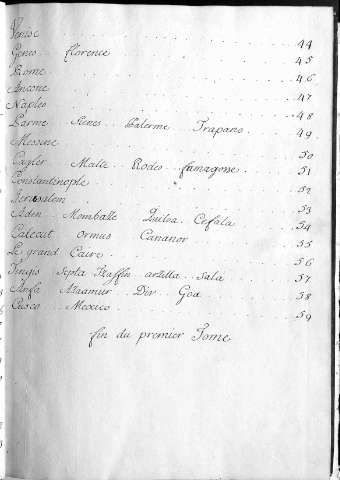 Venise 44
Genes florence 45
Rome 46
Ancone 47
Naples 48
Parme Sienes Palerme Trapano 49
Messine 50
Malte Rodes famagosse 51
Constantinople 52
Jerusalem 53
Aden Mombasse Quiloa Cefala 54
Calecut ormus Cananor 55
Le grand Caire 56
Tingis Septa Saffin arzilla Sala 57
Anfa Azaamur Div Goa 58
Cusco Mexico 59
fin du premier Tome